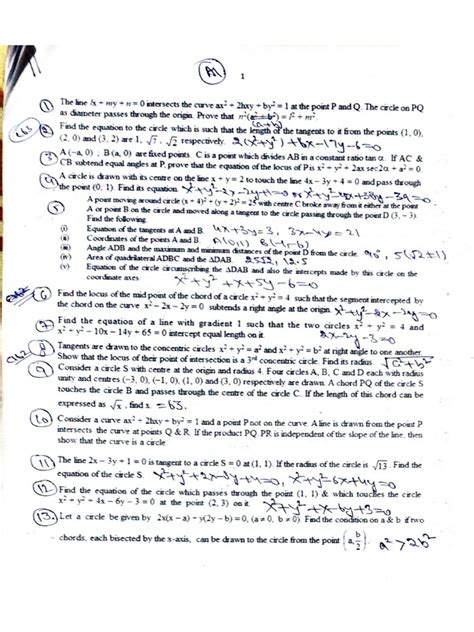 A1
1
① The line lx + my + n = 0 intersects the curve ax² + 2hxy + by² = 1 at the point P and Q. The circle on PQ
as diameter passes through the origin. Prove that n²(a² + b²) = l² + m².
(a+b)
② Find the equation to the circle which is such that the length of the tangents to it from the points (1, 0),
(2, 0) and (3, 2) are 1, √7, √2 respectively. 2(x²+y²)+6x-17y-6=0
3 A(−a, 0) ; B(a, 0) are fixed points. C is a point which divides AB in a constant ratio tan α. If AC &
CB subtend equal angles at P, prove that the equation of the locus of P is x² + y² + 2ax sec2α + a² = 0.
4 A circle is drawn with its centre on the line x + y = 2 to touch the line 4x − 3y + 4 = 0 and pass through
the point (0, 1). Find its equation. x²+y²-2x-2y+1=0 or x²+y²-42x+38y-39=0
5 A point moving around circle (x + 4)² + (y + 2)² = 25 with centre C broke away from it either at the point
A or point B on the circle and moved along a tangent to the circle passing through the point D (3, − 3).
Find the following.
(i) Equation of the tangents at A and B. 4x+3y=3, 3x-4y=21
(ii) Coordinates of the points A and B. A(0,1) B(-1,-6)
(iii) Angle ADB and the maximum and minimum distances of the point D from the circle. 90°, 5(√2±1)
(iv) Area of quadrilateral ADBC and the ΔDAB. 25, 12.5
(v) Equation of the circle circumscribing the ΔDAB and also the intercepts made by this circle on the
coordinate axes. x²+y²+x+5y-6=0
⑥ Find the locus of the mid point of the chord of a circle x² + y² = 4 such that the segment intercepted by
the chord on the curve x² − 2x − 2y = 0 subtends a right angle at the origin. x²+y²-2x-2y=0
7 Find the equation of a line with gradient 1 such that the two circles x² + y² = 4 and
x² + y² − 10x − 14y + 65 = 0 intercept equal length on it. 2x-2y-3=0
8 Tangents are drawn to the concentric circles x² + y² = a² and x² + y² = b² at right angle to one another.
Show that the locus of their point of intersection is a 3rd concentric circle. Find its radius. √a²+b²
9 Consider a circle S with centre at the origin and radius 4. Four circles A, B, C and D each with radius
unity and centres (−3, 0), (−1, 0), (1, 0) and (3, 0) respectively are drawn. A chord PQ of the circle S
touches the circle B and passes through the centre of the circle C. If the length of this chord can be
expressed as √x, find x. =63.
10 Consider a curve ax² + 2hxy + by² = 1 and a point P not on the curve. A line is drawn from the point P
intersects the curve at points Q & R. If the product PQ.PR is independent of the slope of the line, then
show that the curve is a circle.
11 The line 2x − 3y + 1 = 0 is tangent to a circle S = 0 at (1, 1). If the radius of the circle is √13. Find the
equation of the circle S. x²+y²+2x-8y+4=0, x²+y²-6x+4y=0
12. Find the equation of the circle which passes through the point (1, 1) & which touches the circle
x² + y² + 4x − 6y − 3 = 0 at the point (2, 3) on it. x²+y²+x-6y+3=0
13. Let a circle be given by 2x(x − a) + y(2y − b) = 0, (a ≠ 0, b ≠ 0). Find the condition on a & b if two
chords, each bisected by the x-axis, can be drawn to the circle from the point (a, b/2). a²>2b²